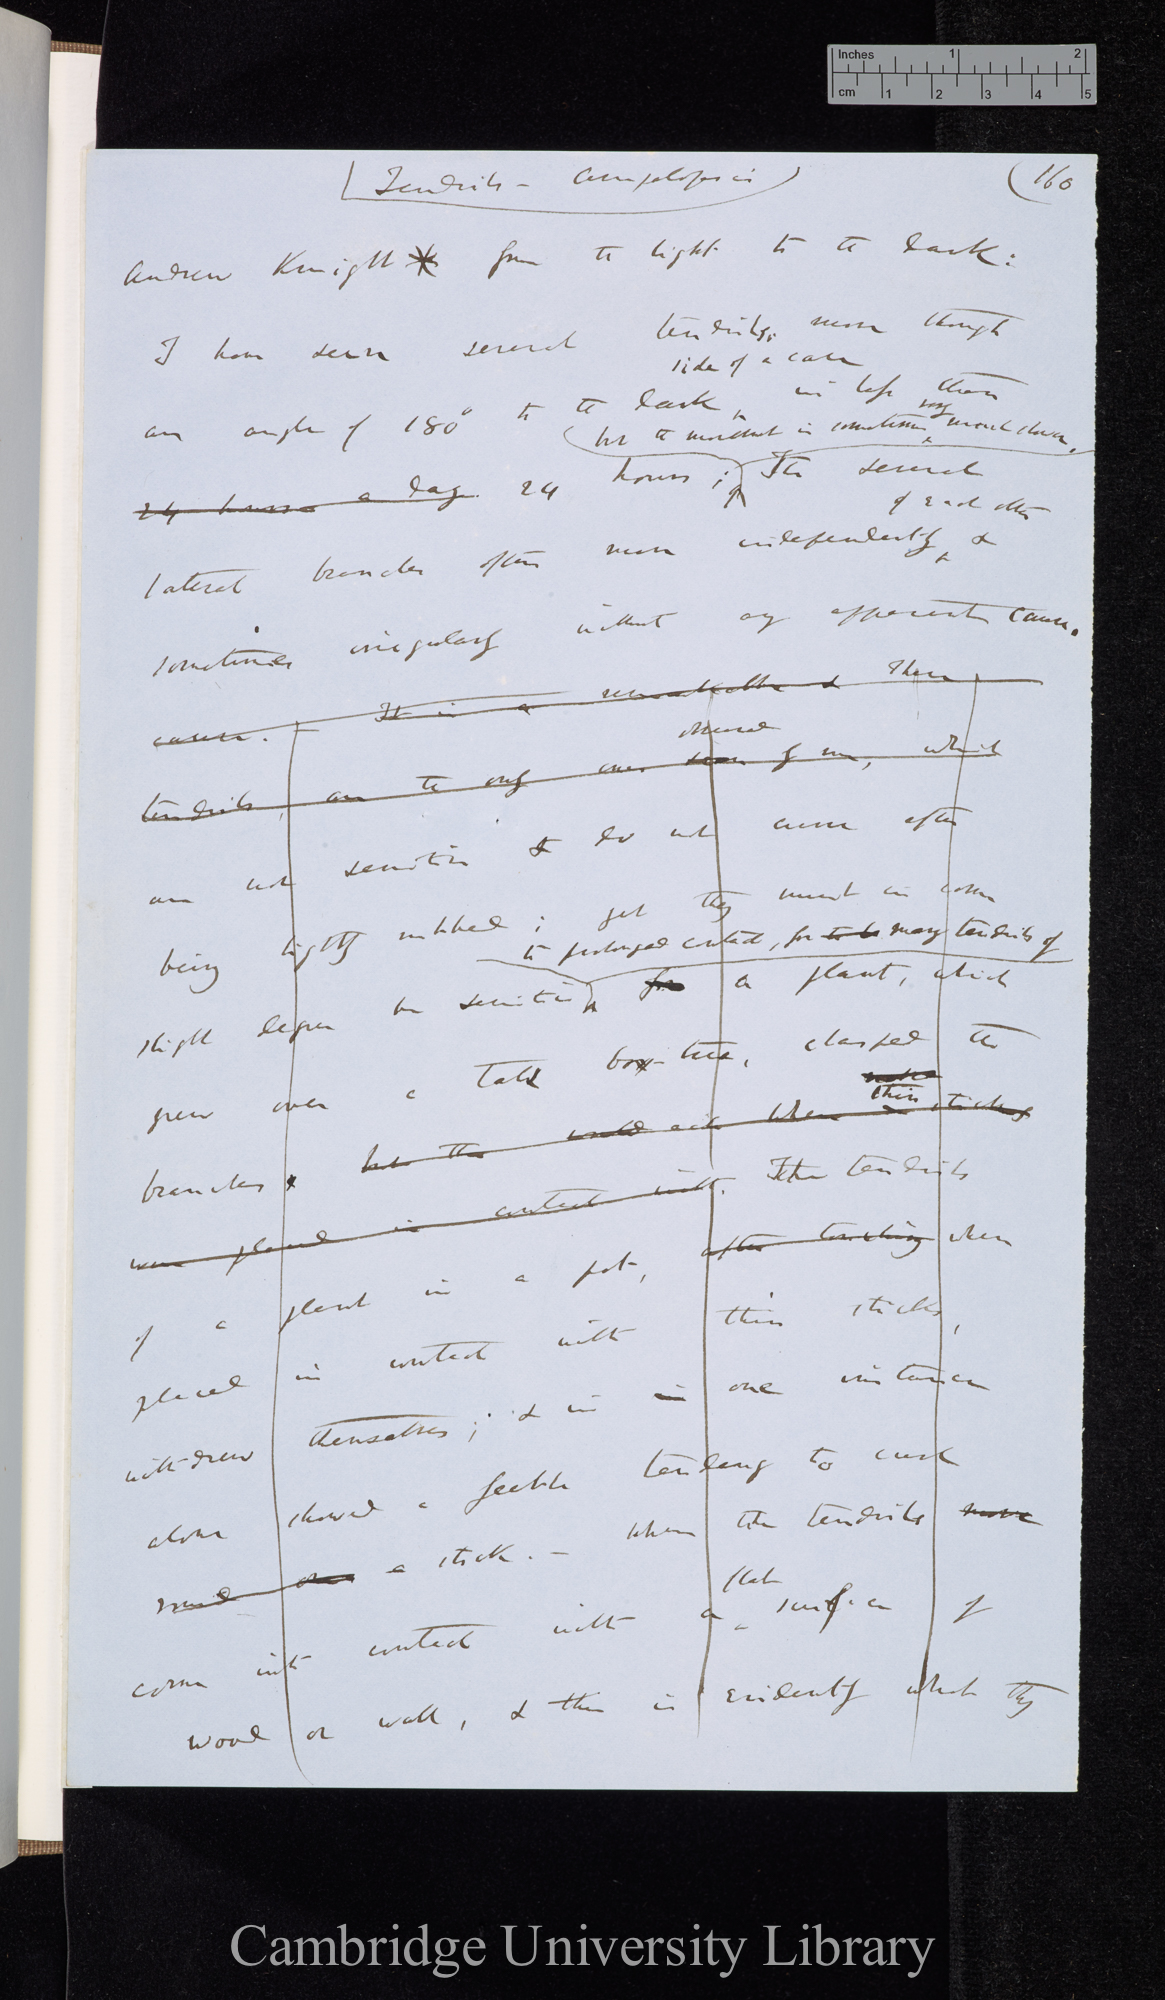 Inches 1 2
cm 1 2 3 4 5
Tendrils - Ampelopsis
(160
Andrew Knight * from the light to the dark:
I have seen several tendrils, move though
side of a case
an angle of 180° to the dark in less than
but the movement is sometimes very much slower.
24 hours a day. 24 hours; The several
of each other
lateral branches often move independently, &
sometimes irregularly without any apparent cause.
cause. It is a remarkable & These
observed
tendrils, are the only ones seen by me, which
are not sensitive & do not curve after
being lightly rubbed; yet they must in some
to prolonged contact, for to be many tendrils of
slight degree be sensitive for a plant, which
grew over a tall box-tree, clasped the
thin
branches. but the would each when sticks
were placed in contact with. The tendrils
of a plant in a pot, after touching when
placed in contact with thin sticks,
withdrew themselves; & in in one instance
alone showed a feeble tendency to curl
round a stick. - When the tendrils move
flat
come into contact with a surface of
wood or wall, & this is evidently what they
Cambridge University Library